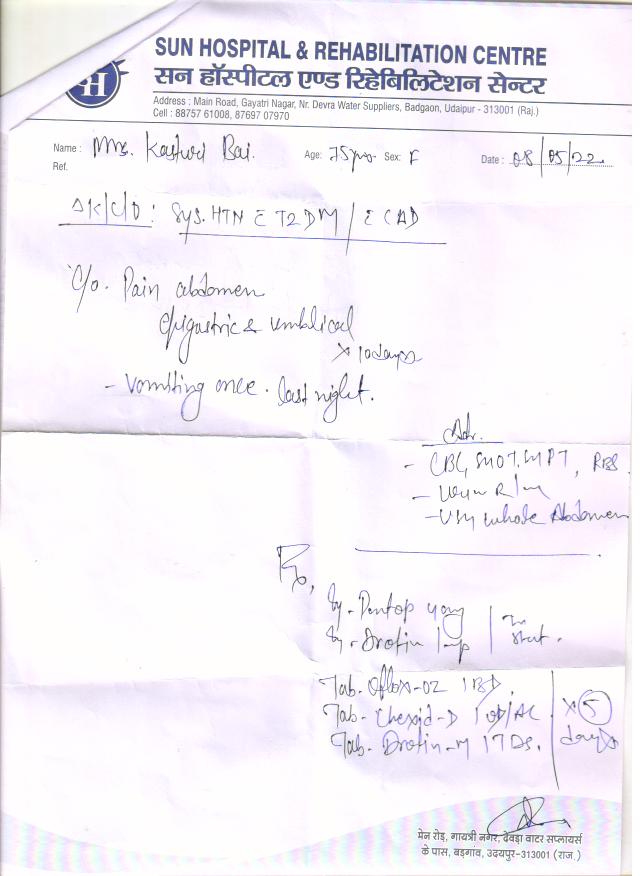 SUN HOSPITAL & REHABILITATION CENTRE
सन हॉस्पीटल एण्ड रिहेबिलिटेशन सेन्टर
Address : Main Road, Gayatri Nagar, Nr. Devra Water Suppliers, Badgaon, Udaipur - 313001 (Raj.)
Cell : 88757 61008, 87697 07970
Name : Mrs. Kasturi Bai. Age: 75 Sex: F Date : 08/05/22
Ref.
K/C/O : Sys. HTN c T2DM / c CAD
C/o. Pain abdomen
epigastric & umblical
x 10 days
- Vomiting once. last night.
Adv.
- CBC, SGOT, SGPT, RBS
- Urine R/M
- USG whole Abdomen
Rx,
Inj. Pantop 40mg
Inj. Drotin 1amp stat.
Tab. Oflox-OZ 1 BD
Tab. D 1 OD/AC x 5
Tab. Drotin-M 1 TDS. days
मेन रोड़, गायत्री नगर, देवड़ा वाटर सप्लायर्स
के पास, बड़गांव, उदयपुर-313001 (राज.)